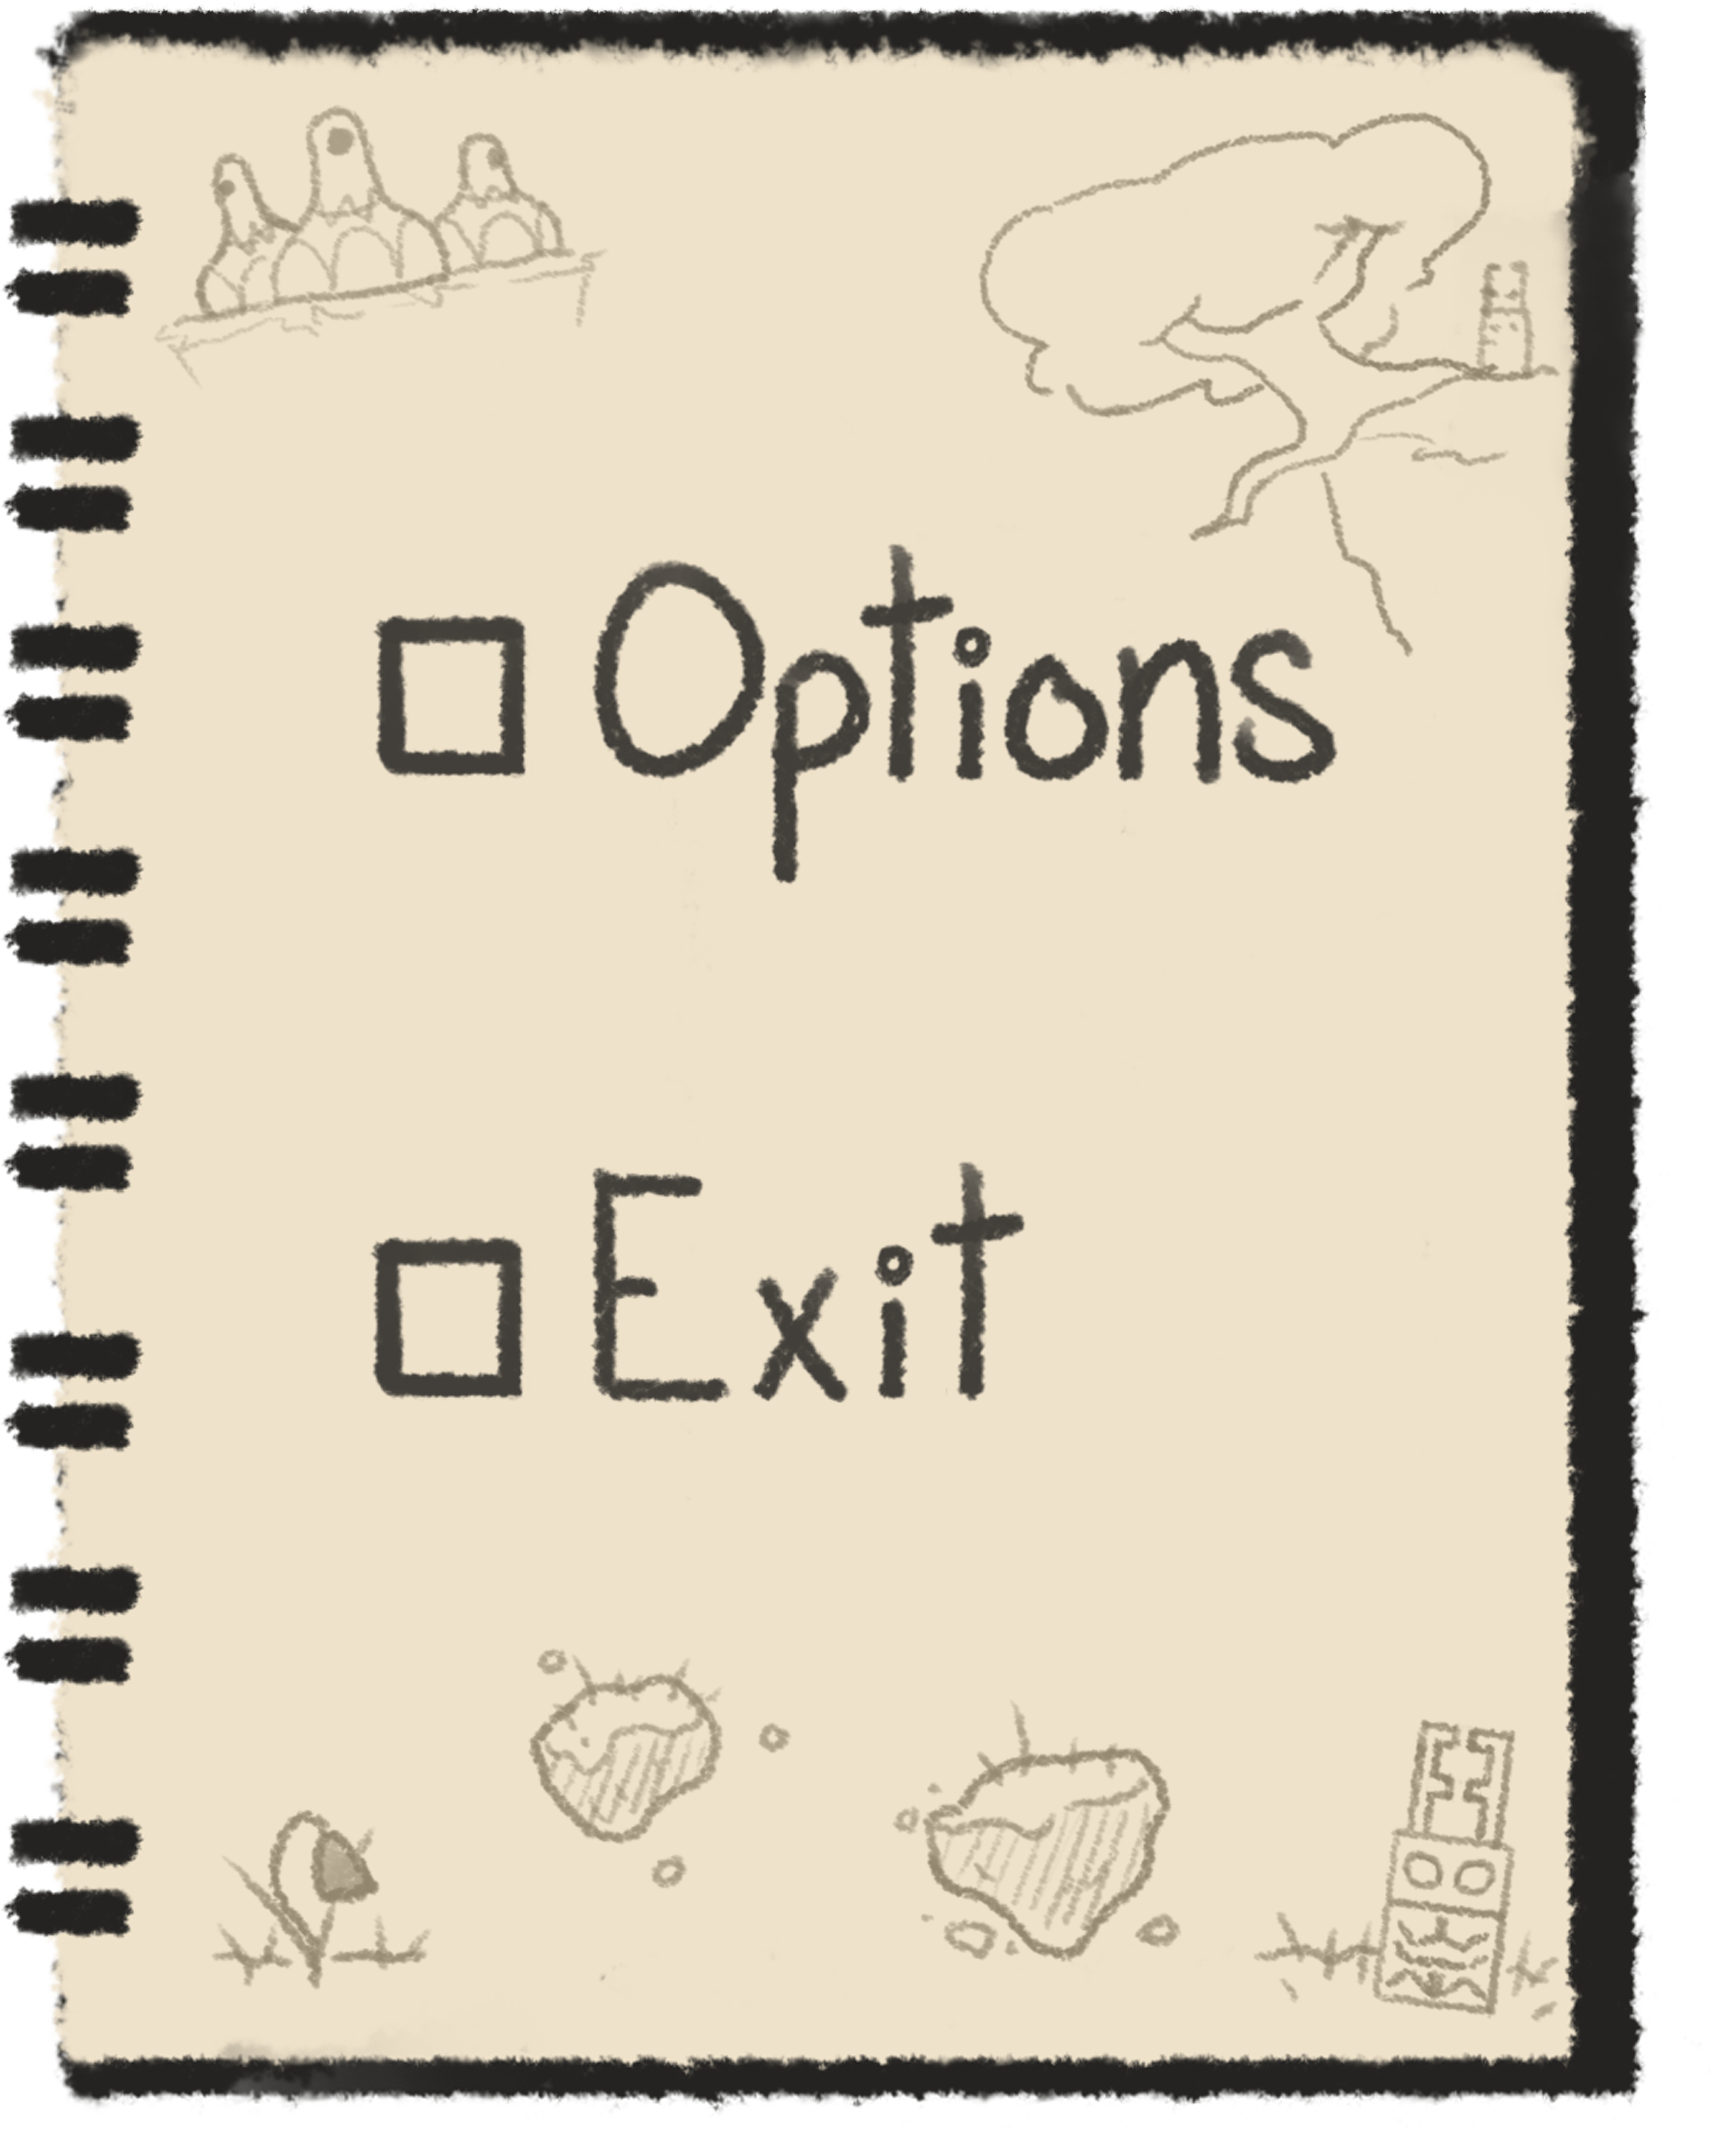 Options
Exit